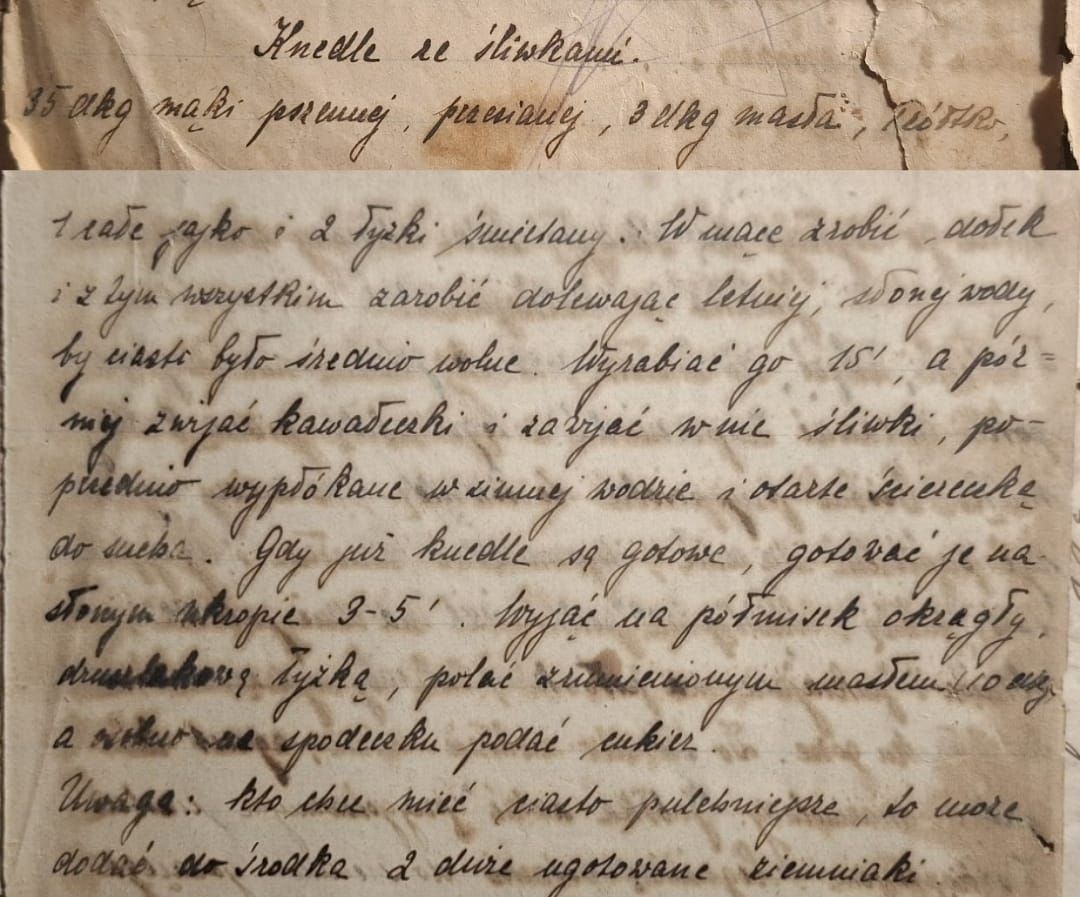 Knedle ze śliwkami.
35 dkg mąki pszennej, przesianej, 3 dkg masła, żółtko,
1 całe jajko i 2 łyżki śmietany. W mące zrobić dołek
i z tym wszystkim zarobić dolewając letniej, słonej wody,
by ciasto było średnio wolne. Wyrabiać go 15', a póź=
niej zwijać kawałeczki i zawijać w nie śliwki, po-
przednio wypłókane w zimnej wodzie i otarte ściereczką
do sucha. Gdy już knedle są gotowe, gotować je na
słonym ukropie 3-5'. Wyjąć na półmisek okrągły,
druszlakową łyżką, polać zrumienionym masłem 10 dkg,
a spodeczku podać cukier.
Uwaga: kto chce mieć ciasto pulchniejsze, to może
dodać do środka 2 duże ugotowane ziemniaki.